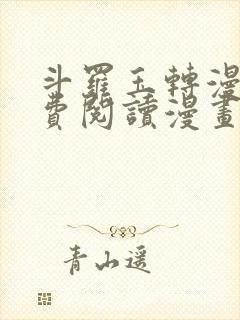 斗羅玉轉漫
費閱讀漫畫
青山遥